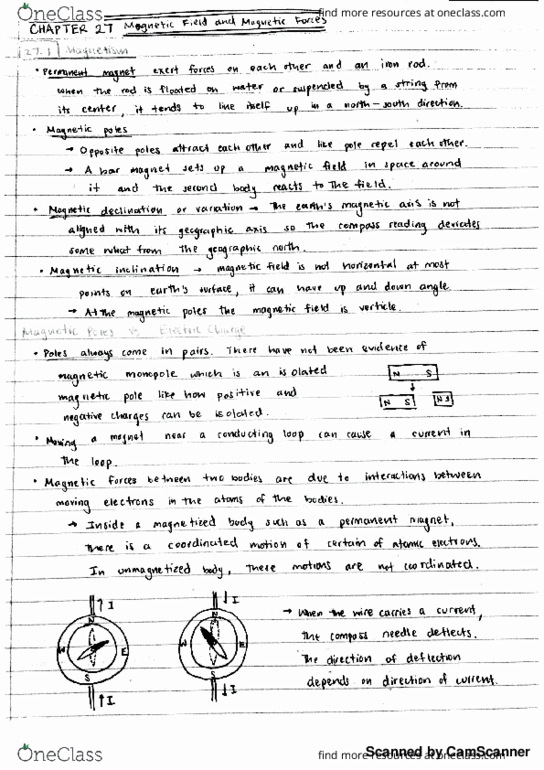 OneClass
find more resources at oneclass.com
CHAPTER 27 Magnetic Field and Magnetic Forces
27.1 Magnetism
• Permanent magnet exert forces on each other and an iron rod.
when the rod is floated on water or suspended by a string from
its center, it tends to line itself up in a north-south direction.
• Magnetic poles
→ Opposite poles attract each other and like pole repel each other.
→ A bar magnet sets up a magnetic field in space around
it and the second body reacts to the field.
• Magnetic declination or variation → The earth's magnetic axis is not
aligned with its geographic axis so the compass reading deviates
some what from the geographic north.
• Magnetic inclination → magnetic field is not horizontal at most
points on earth's surface, it can have up and down angle.
→ At the magnetic poles the magnetic field is verticle.
Magnetic Poles vs Electric Charge
• Poles always come in pairs. There have not been evidence of
magnetic monopole which is an isolated
magnetic pole like how positive and
negative charges can be isolated.
N S
N S N S
• Moving a magnet near a conducting loop can cause a current in
the loop.
• Magnetic forces between two bodies are due to interactions between
moving electrons in the atoms of the bodies.
→ Inside a magnetized body such as a permanent magnet,
there is a coordinated motion of certain of atomic electrons.
In unmagnetized body, these motions are not coordinated.
↑ I ↓ I
N N
W E W E
S S
↑ I ↓ I
→ When the wire carries a current,
the compass needle deflects.
The direction of deflection
depends on direction of current.
OneClass
find more resources at oneclass.com
Scanned by CamScanner